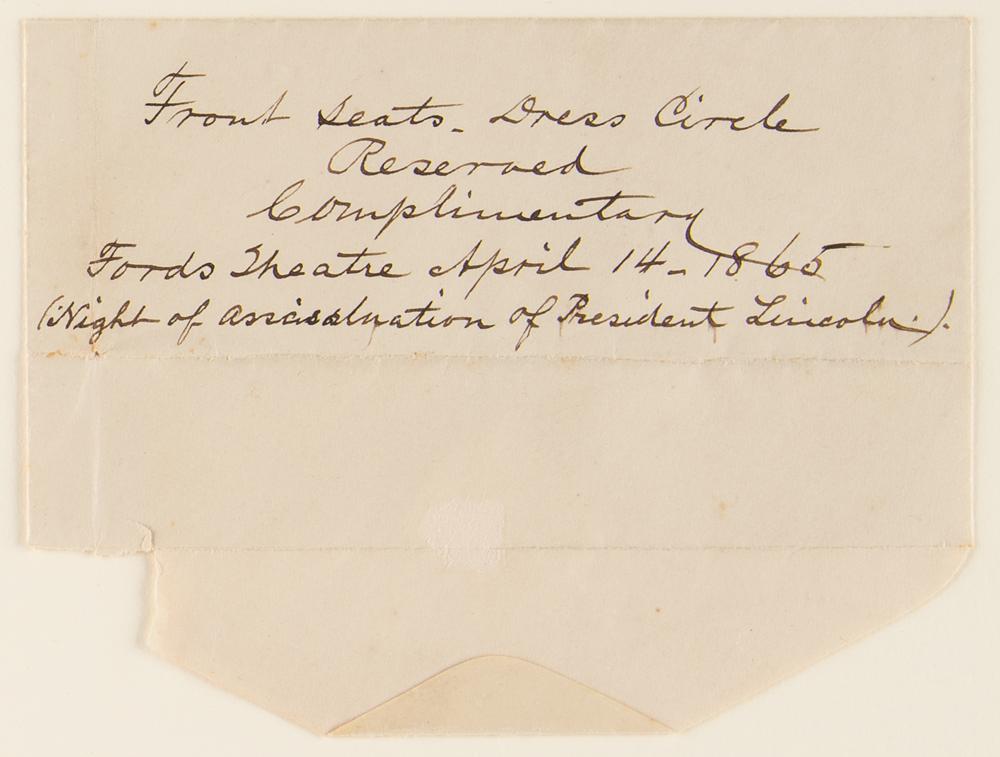 Front seats. Dress Circle
Reserved
Complimentary
Fords Theatre April 14 - 1865
(Night of assassination of President Lincoln.).